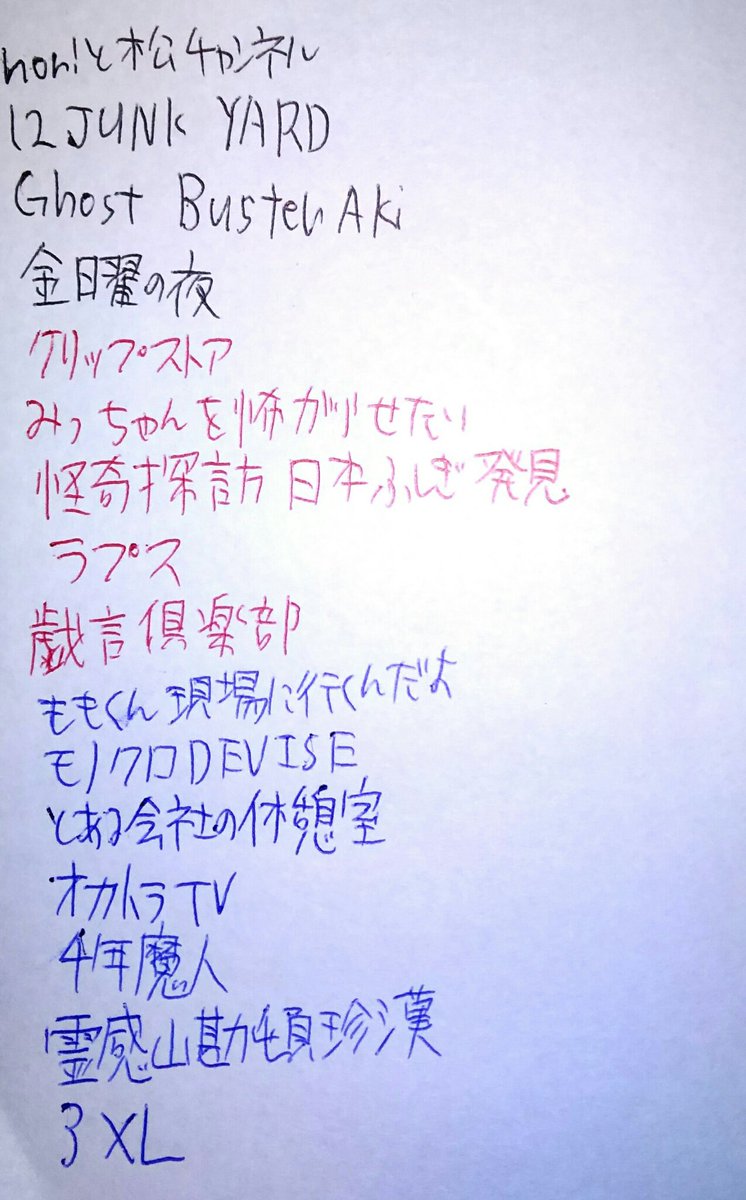 nori!と松チャンネル
12JUNK YARD
Ghost Buster Aki
金曜の夜
クリップストア
みっちゃんを怖がりせたい
怪奇探訪 日本ふしぎ発見
ラプス
戯言倶楽部
ももくん現場に行くんだよ
モノクロDEVISE
とある会社の休憩室
オカトラTV
4年魔人
霊感山勘頓珍漢
3XL